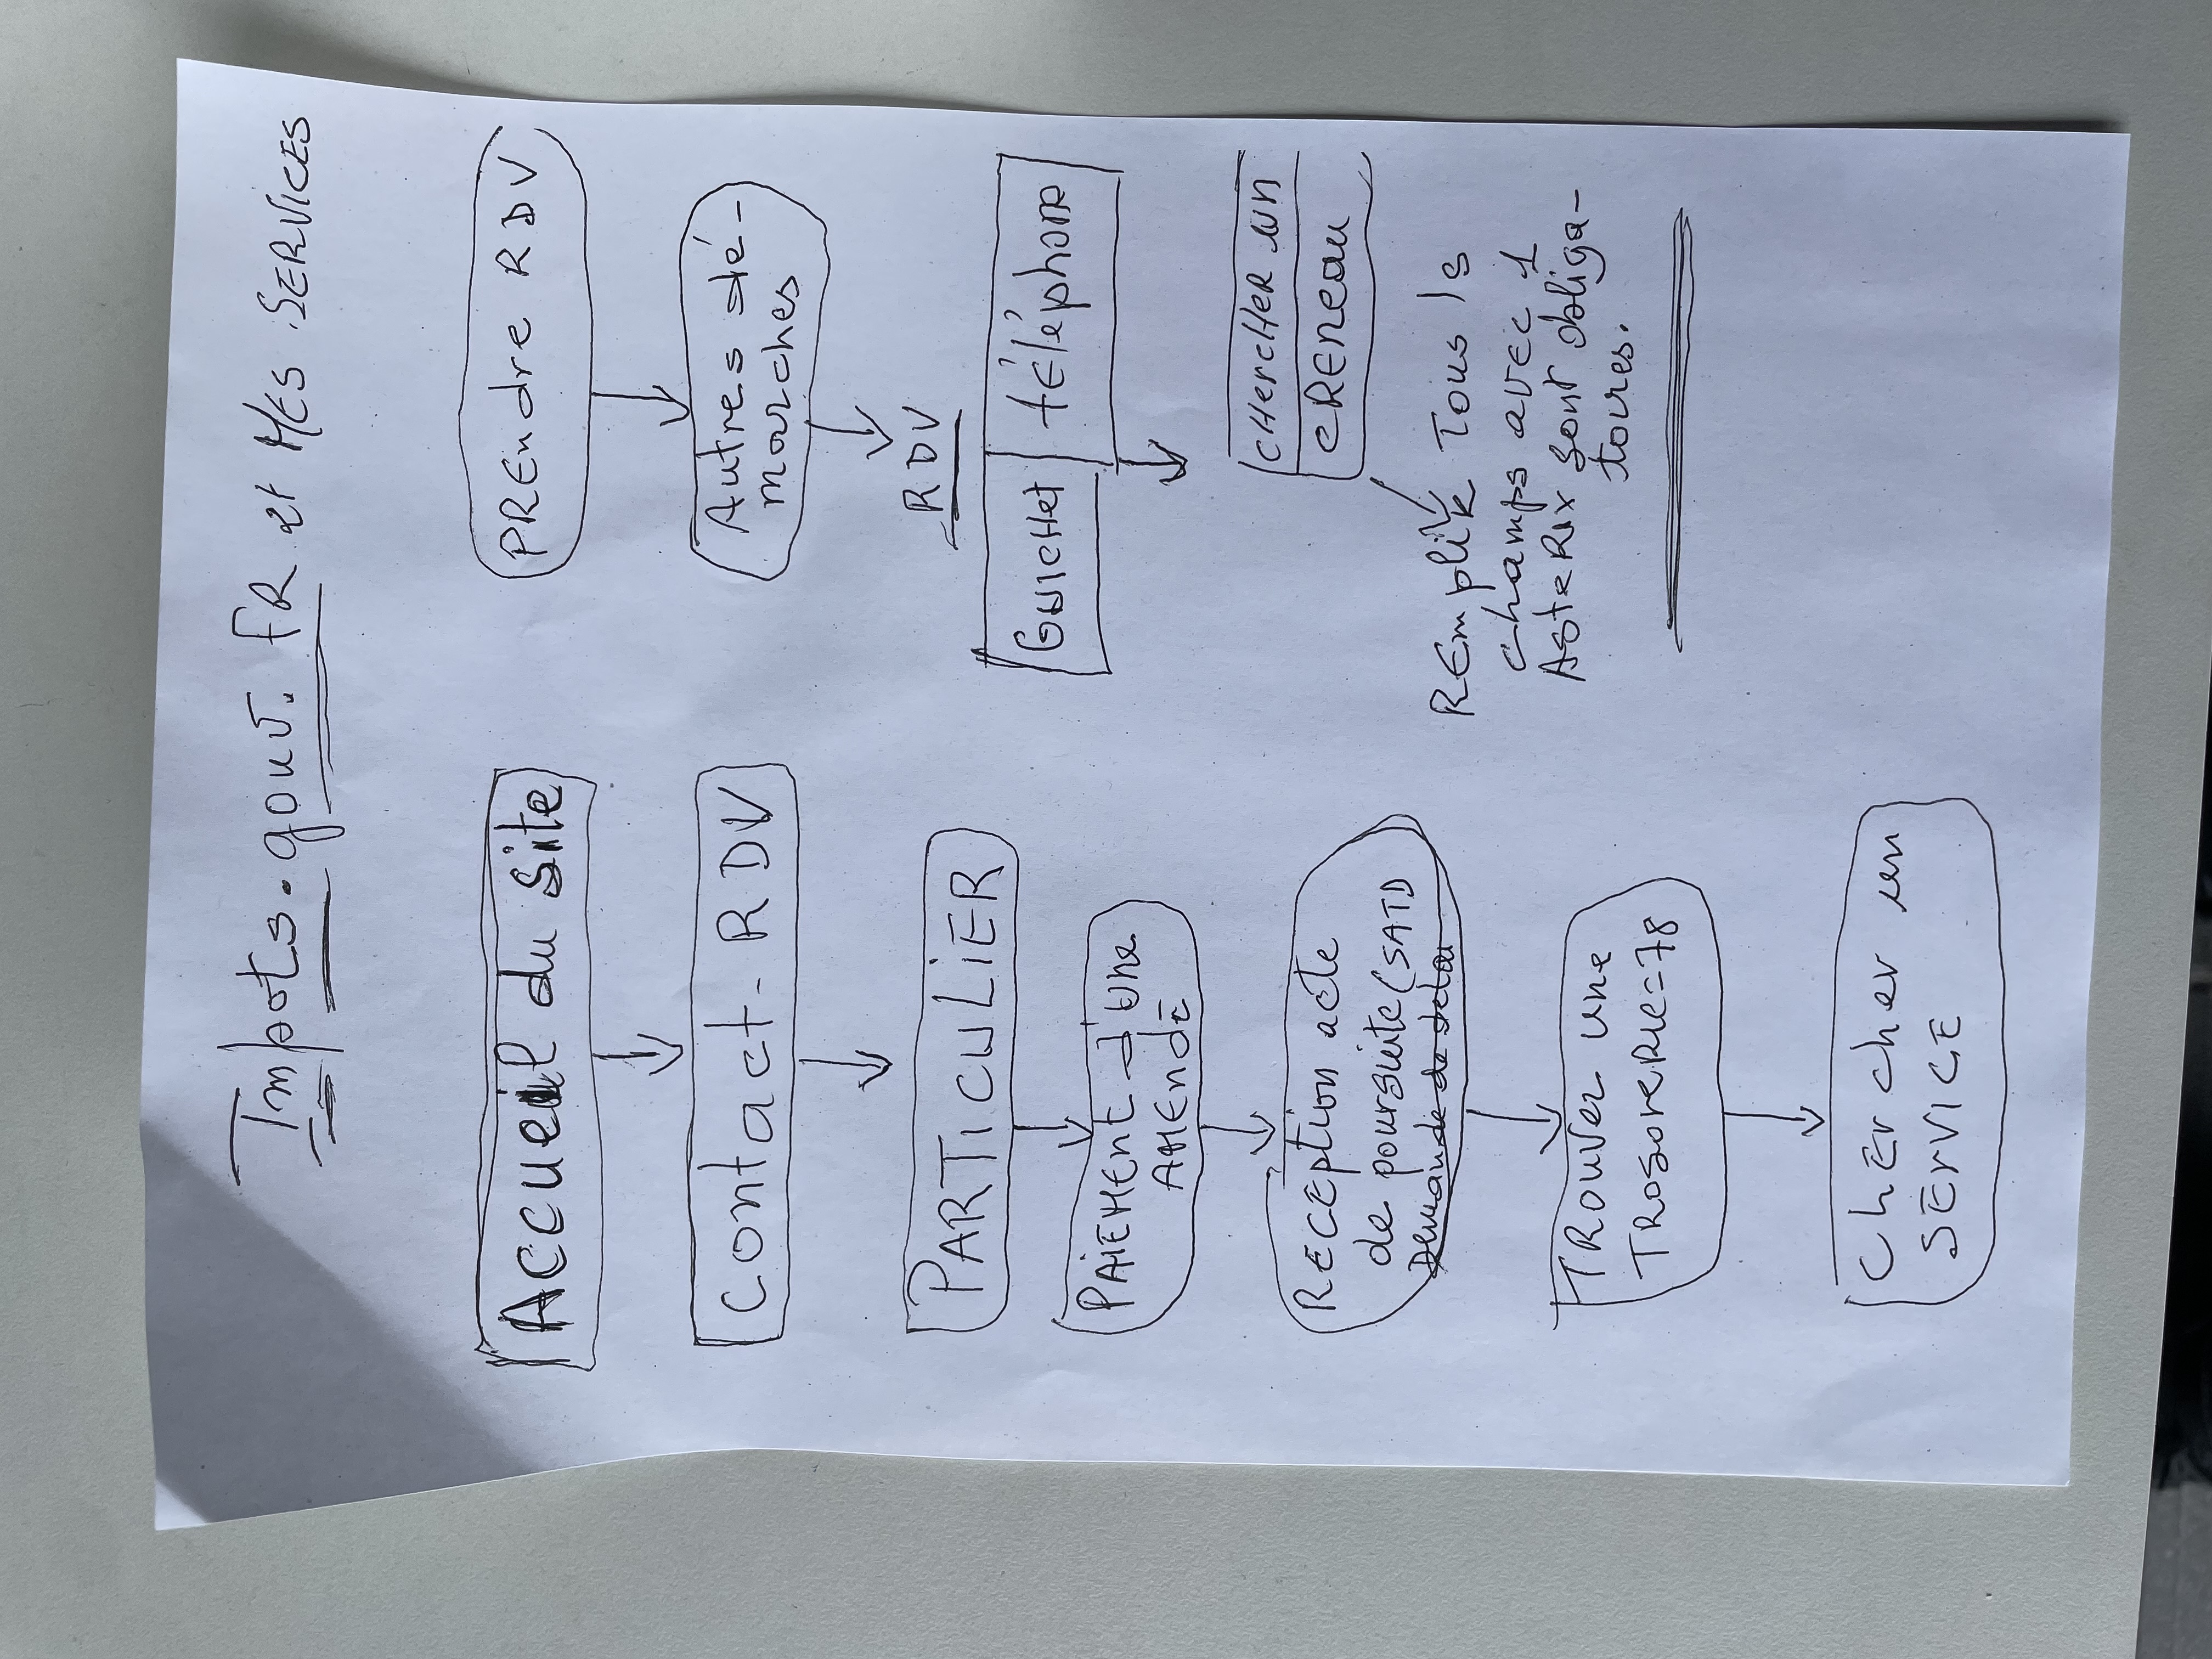 Impots.gouv.fR et MES SERVICES
Accueil du Site
Contact-RDV
PARTICULIER
PAIEMENT d'une
AMENDE
RECEPTION acte
de poursuite (SATD
TROUVER une
TRESORERIE=78
CHERCHER un
SERVICE
PREndre RDV
Autres dé-
marches
RDV
GUICHET téléphone
CHERCHER un
CRENEAU
REmplir Tous ls
champs avec 1
AsteRix sont obliga-
toires.